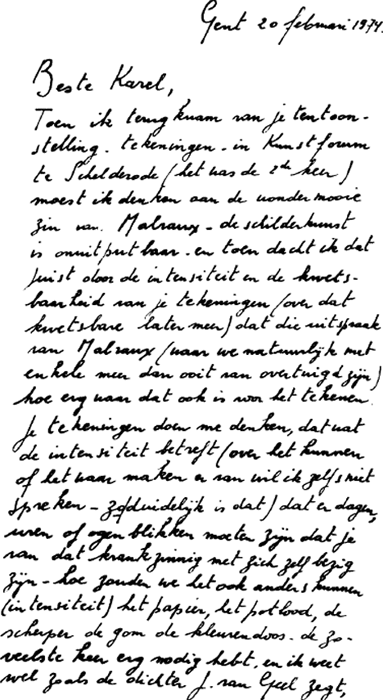 Gent 20 februari 1974.
Beste Karel,
Toen ik terug kwam van je tentoon-
stelling - tekeningen - in Kunstforum
te Schelderode (het was de 2de keer)
moest ik denken aan de wondermooie
zin van Malraux - de schilderkunst
is onuitputbaar - en toen dacht ik dat
juist door de intensiteit en de kwets-
baarheid van je tekeningen (over dat
kwetsbare later meer) dat die uitspraak
van Malraux (waar we natuurlijk met
enkele meer dan ooit van overtuigd zijn)
hoe erg waar dat ook is voor het tekenen.
Je tekeningen doen me denken, dat wat
de intensiteit betreft (over het kunnen
of het waar maken er van wil ik zelfs niet
spreken - zo duidelijk is dat) dat er dagen,
uren of ogenblikken moeten zijn dat je
van dat krankzinnig met zich zelf bezig
zijn - hoe zouden we het ook anders kunnen
(intensiteit) het papier, het potlood, de
scherper de gom de kleurendoos - de zo-
veelste keer erg nodig hebt, en ik weet
wel zoals de dichter J. van Geel zegt,